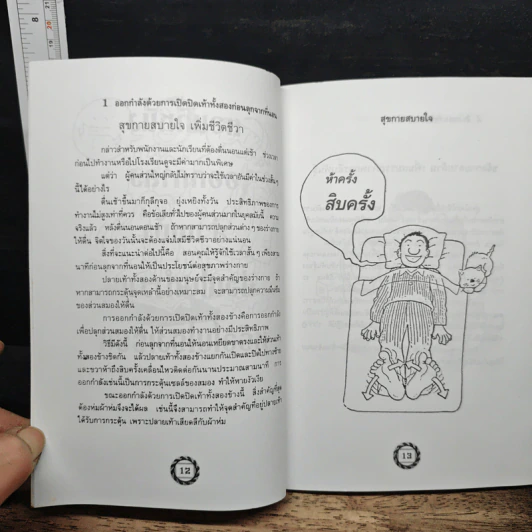 8
1 ออกกำลังด้วยการเปิดปิดเท้าทั้งสองก่อนลุกจากที่นอน
สุขกายสบายใจ เพิ่มชีวิตชีวา
กล่าวสำหรับพนักงานและนักเรียนที่ต้องตื่นนอนแต่เช้า ช่วงเวลา
ก่อนไปทำงานหรือไปโรงเรียนดูจะมีค่ามากเป็นพิเศษ
แต่ว่า ผู้คนส่วนใหญ่กลับไม่ทราบว่าจะใช้เวลาอันมีค่าในช่วงสั้นๆ
นี้ได้อย่างไร
ตื่นเช้าขึ้นมาก็กุลีกุจอ ยุ่งเหยิงทั้งวัน ประสิทธิภาพของการ
ทำงานไม่สูงเท่าที่ควร คือข้อเสียทั่วไปของผู้คนส่วนมากในยุคสมัยนี้ ความ
จริงแล้ว หลังตื่นนอนตอนเช้า ถ้าหากสามารถปลุกส่วนต่างๆ ของร่างกาย
ให้ตื่น จิตใจของวันนั้นจะต้องแจ่มใสมีชีวิตชีวาอย่างแน่นอน
สิ่งที่จะแนะนำต่อไปนี้คือ สอนคุณให้รู้จักใช้เวลาสั้นๆ เพียงสาม
นาทีก่อนลุกจากที่นอนให้เป็นประโยชน์ต่อสุขภาพร่างกาย
ปลายเท้าทั้งสองด้านของมนุษย์จะมีจุดสำคัญของร่างกาย ถ้า
หากสามารถกระตุ้นจุดเหล่านี้อย่างเหมาะสม จะสามารถปลุกความตื่นตัว
ของส่วนสมองให้ตื่น
การออกกำลังด้วยการเปิดปิดเท้าทั้งสองข้างคือการออกกำลัง
เพื่อปลุกส่วนสมองให้ตื่น ให้ส่วนสมองทำงานอย่างมีประสิทธิภาพ
วิธีมีดังนี้ ก่อนลุกจากที่นอนให้นอนเหยียดขาตรงและให้ส้นเท้า
ทั้งสองข้างชิดกัน แล้วปลายเท้าทั้งสองข้างแยกกันเปิดและปิดไปทางซ้าย
และขวาห้าถึงสิบครั้งเคลื่อนไหวติดต่อกันนานประมาณสามนาที การ
ออกกำลังเช่นนี้เป็นการกระตุ้นเซลล์ของสมอง ทำให้หายงัวเงีย
ขณะออกกำลังด้วยการเปิดปิดเท้าทั้งสองข้างนี้ สิ่งสำคัญที่สุด
ต้องห่มผ้าห่มจึงจะได้ผล เช่นนี้จึงสามารถทำให้จุดสำคัญที่อยู่ปลายเท้า
ได้รับการกระตุ้น เพราะปลายเท้าเสียดสีกับผ้าห่ม
12
สุขกายสบายใจ
ห้าครั้ง
สิบครั้ง
13